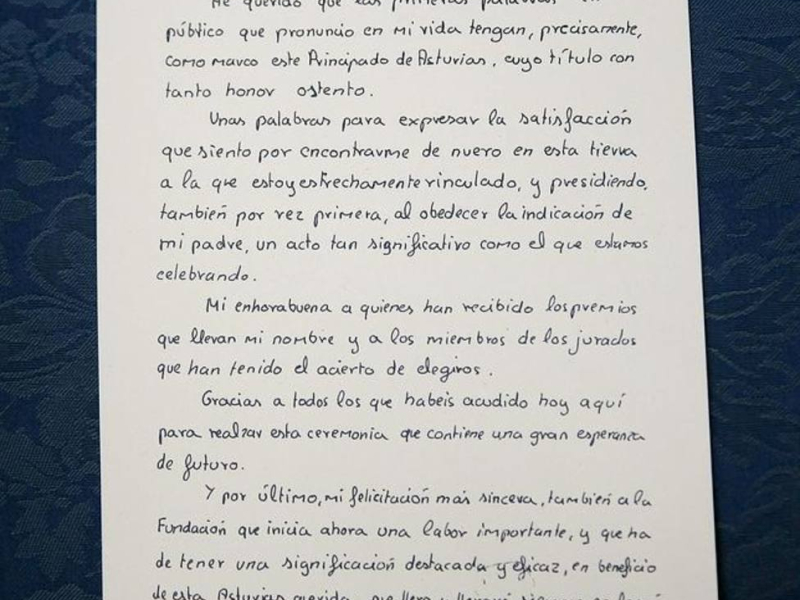 He querido que las primeras palabras en
público que pronuncio en mi vida tengan, precisamente,
como marco este Principado de Asturias, cuyo título con
tanto honor ostento.
Unas palabras para expresar la satisfacción
que siento por encontrarme de nuevo en esta tierra
a la que estoy estrechamente vinculado, y presidiendo,
también por vez primera, al obedecer la indicación de
mi padre, un acto tan significativo como el que estamos
celebrando.
Mi enhorabuena a quienes han recibido los premios
que llevan mi nombre y a los miembros de los jurados
que han tenido el acierto de elegiros.
Gracias a todos los que habeis acudido hoy aquí
para realzar esta ceremonia que contiene una gran esperanza
de futuro.
Y por último, mi felicitación más sincera, también a la
Fundación que inicia ahora una labor importante, y que ha
de tener una significación destacada y eficaz, en beneficio
de esta Asturias querida, que llevo y llevaré siempre